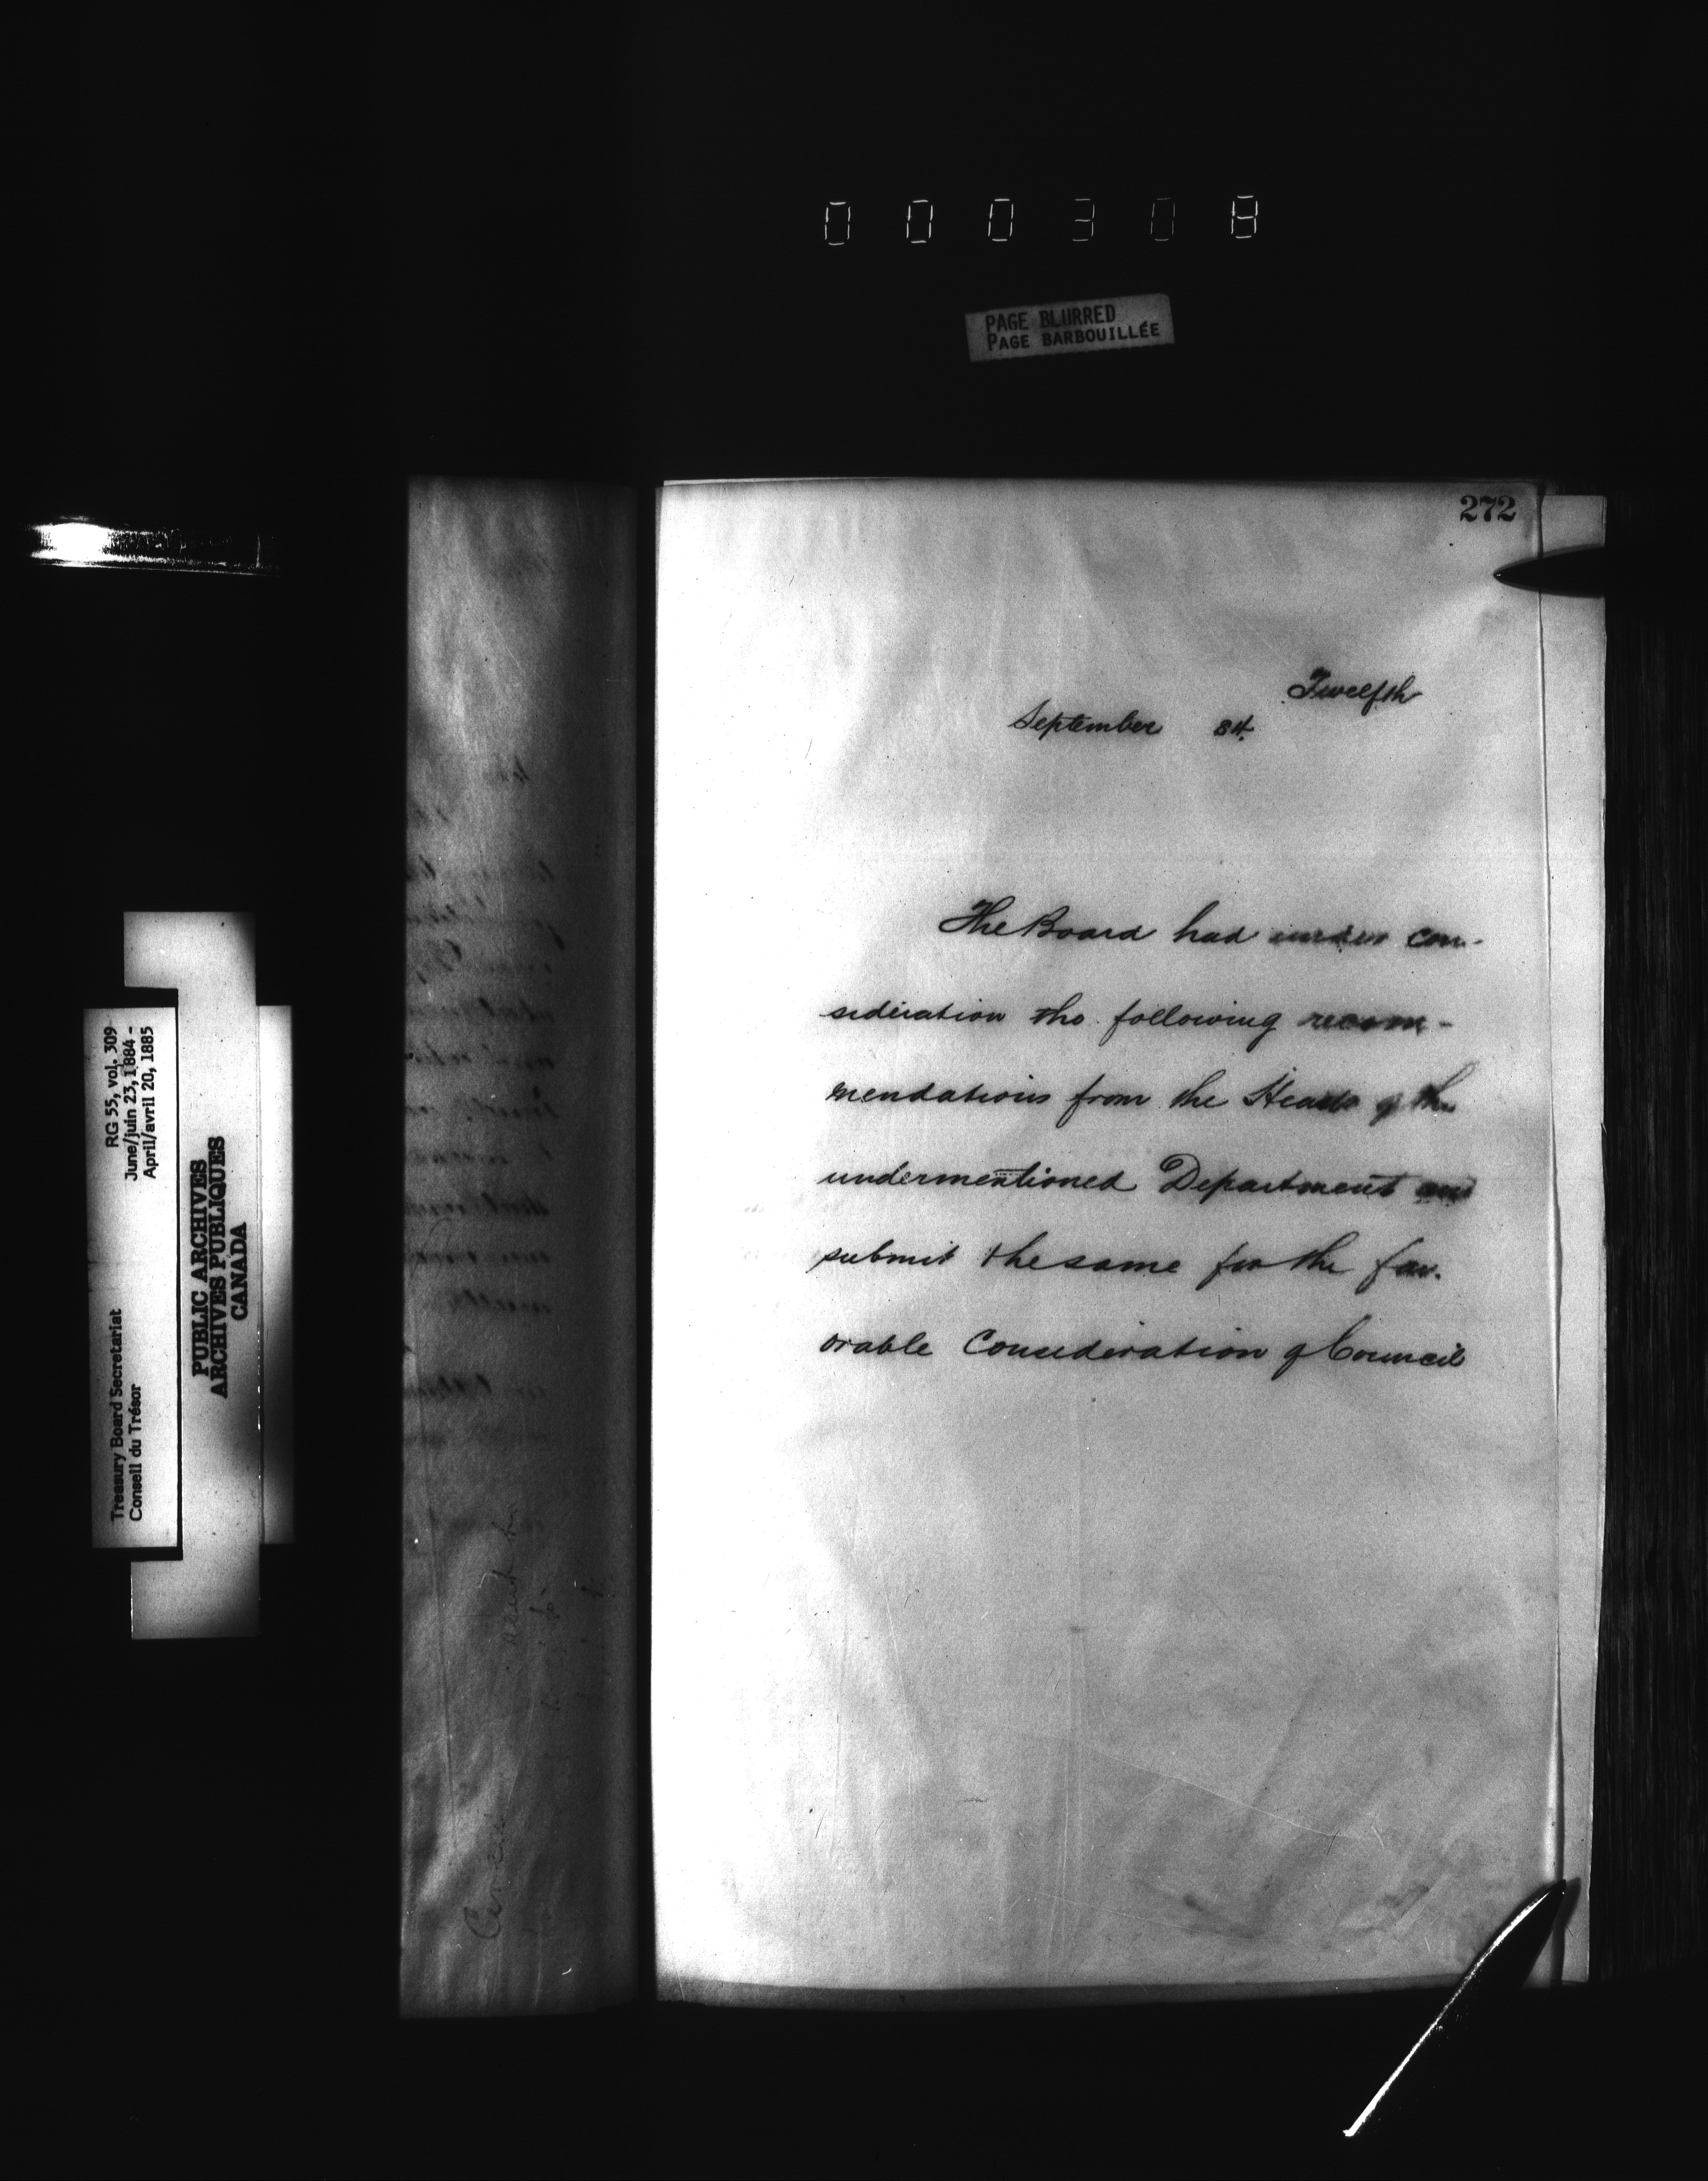 000308
PAGE BLURRED
PAGE BARBOUILLÉE
272
Twelfth
September 84.
The Board had under con-
sideration the following recom-
mendations from the Heads of the
undermentioned Department and
submit the same for the fav-
orable Consideration of Council
RG 55, vol. 309
June/juin 23, 1884 -
April/avril 20, 1885
Treasury Board Secretariat
Conseil du Trésor
PUBLIC ARCHIVES
ARCHIVES PUBLIQUES
CANADA